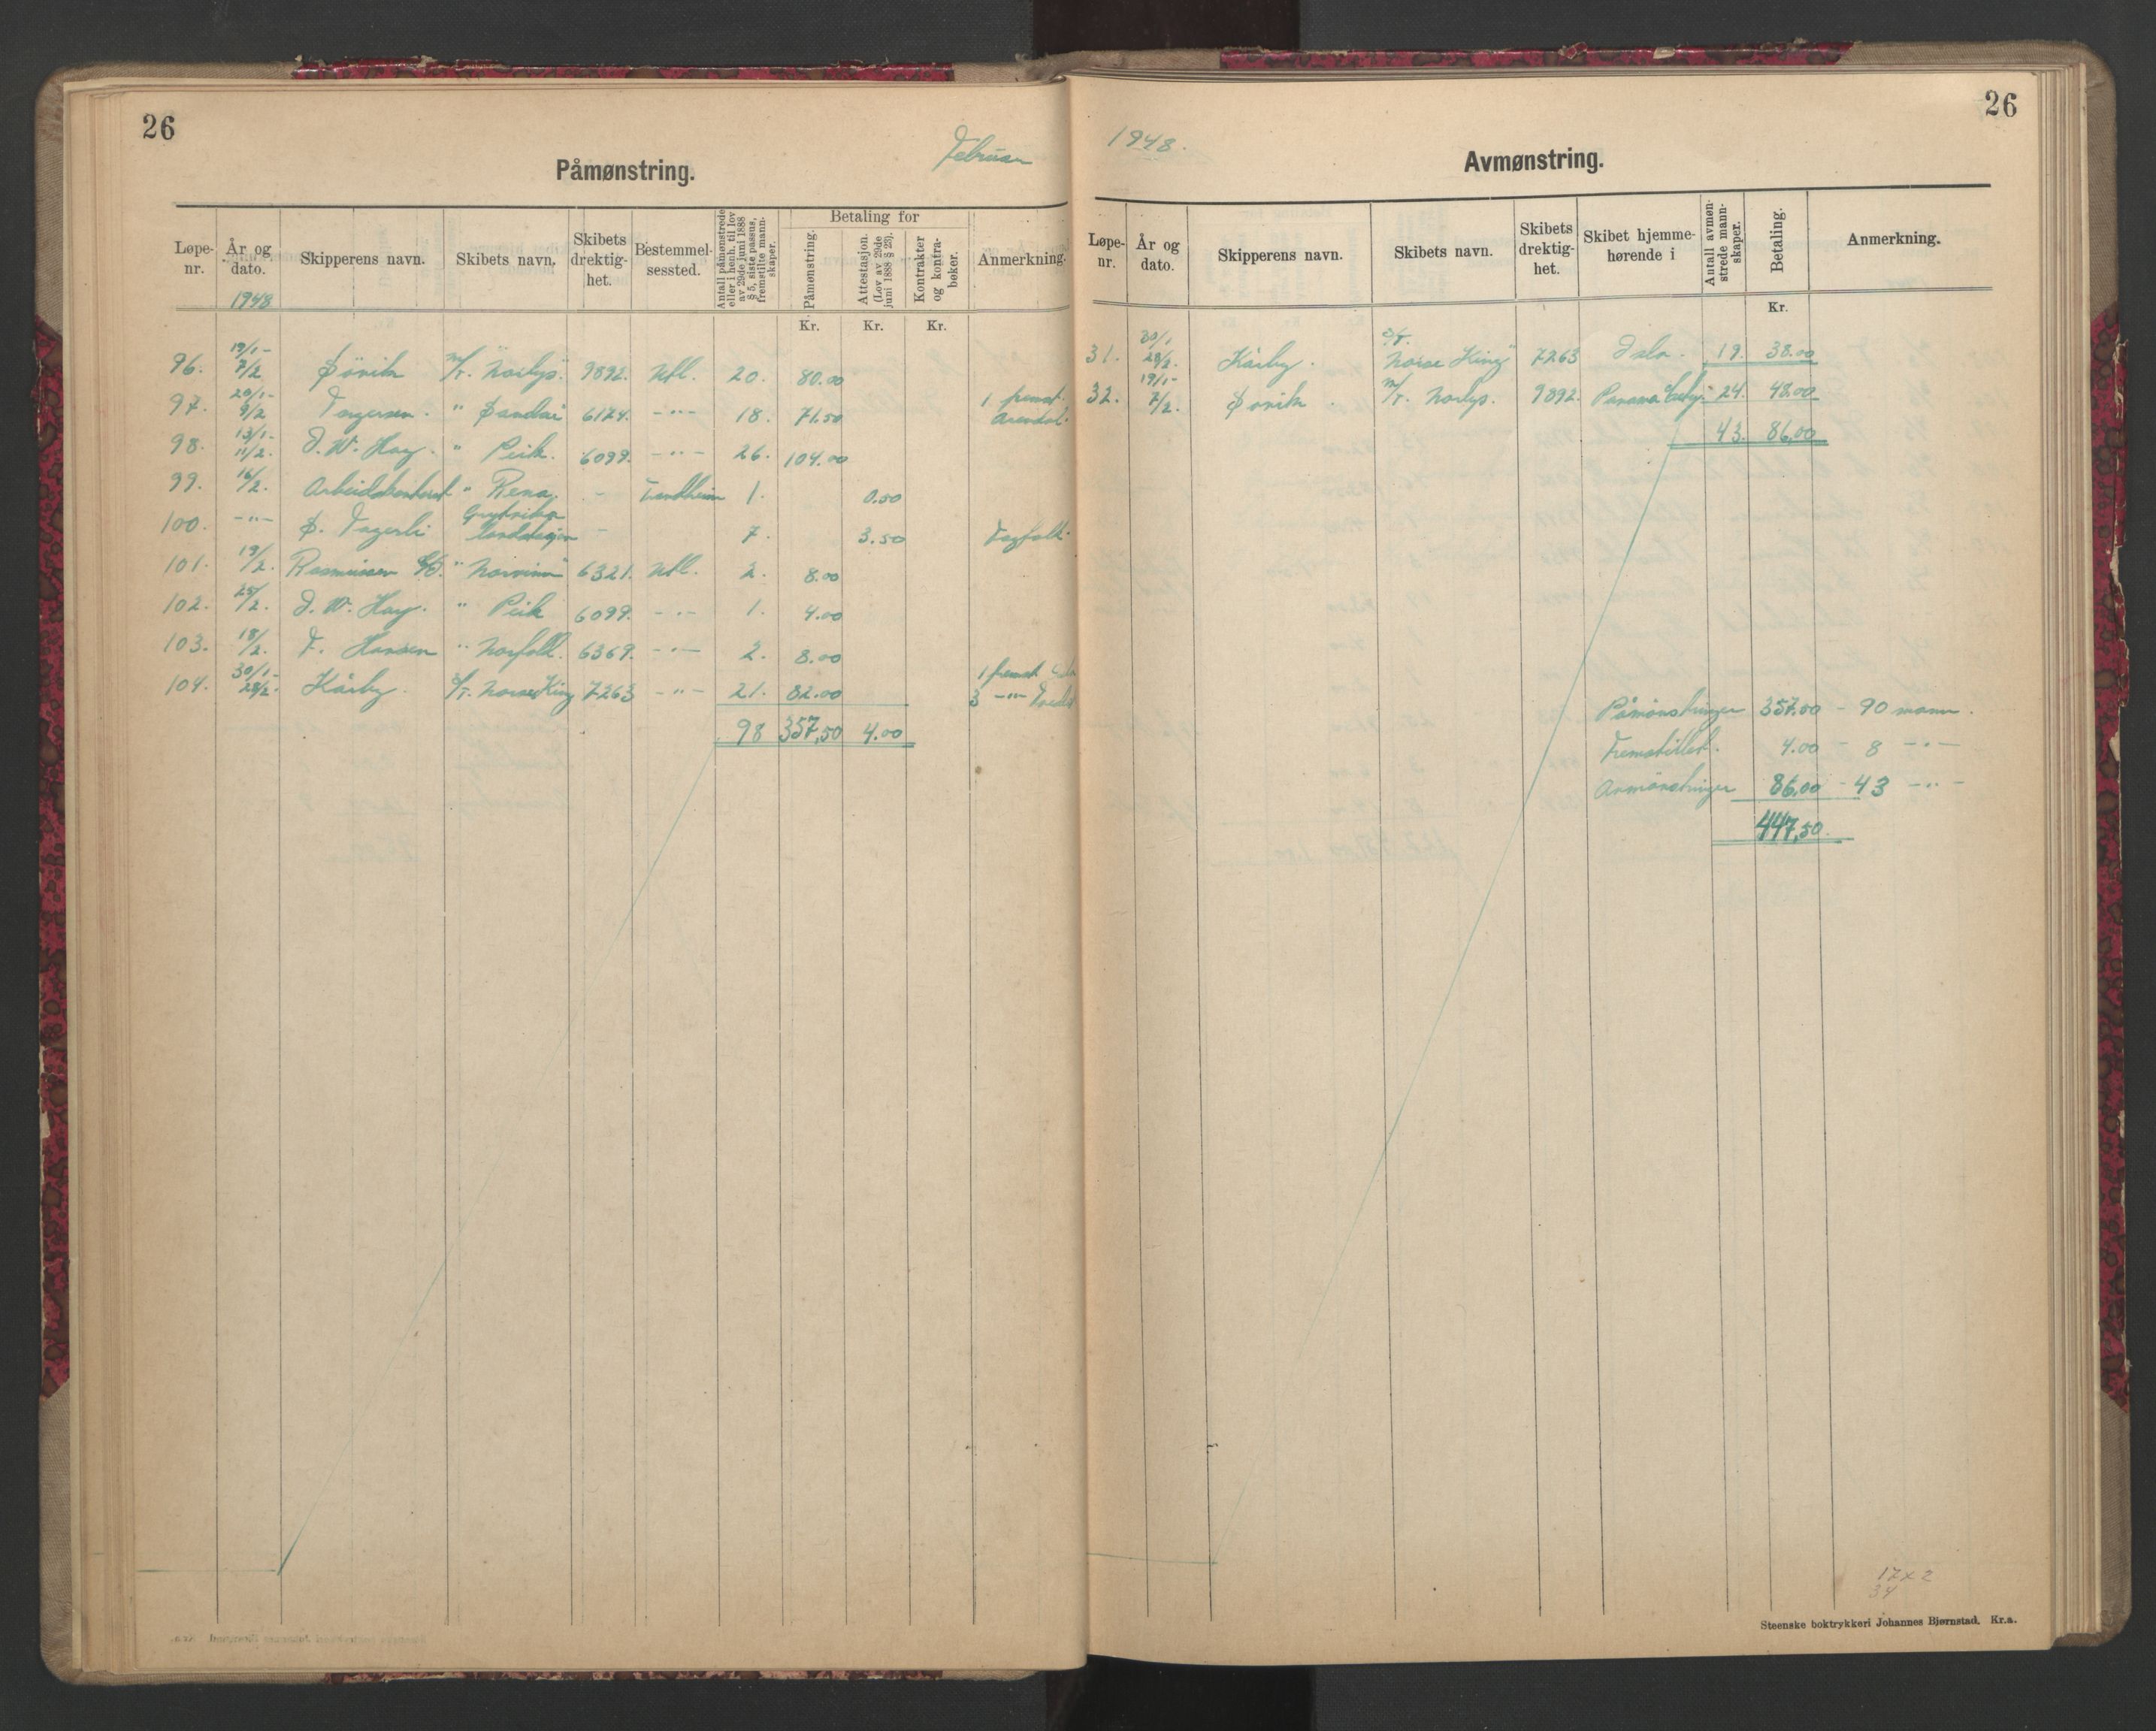 26
Februar
Påmønstring.
Løpe-nr.
År og dato.
Skipperens navn.
Skibets navn.
Skibets drektig-het.
Bestemmel-sessted.
Antall påmønstrede eller i henh. til lov av 29de juni 1888 § 5, siste passus, fremstilte mann-skaper.
Betaling for
Påmønstring.
Attestasjon. (Lov av 29de juni 1888 § 23).
Kontrakter og kontra-bøker.
Anmerkning.
1948
Kr. Kr. Kr.
96. 19/1- 7/2 M/T. Norlys. 9892. Utl. 20. 80.00
97. 20/1- 9/2 Torgersen. " Sandar 6174. -"- 18. 71.50 1 fremst. Arendal.
98. 13/1- 11/2. D. W. Hay. " Peik. 6099. -"- 26. 104.00
99. 16/2. Arbeidskontoret " Rena. - 1. 0.50
100. -"- Grytviken - 7. 3.50
101. 19/2. Rasmussen " Norvinn 6321. Utl. 2. 8.00
102. 25/2. D. W. Hay. " Peik 6099. -"- 1. 4.00
103. 18/2. F. Hansen " Norfold. 6369. -"- 2. 8.00
104. 30/1- 28/2. Kårby. S/T. Norse King 7263 -"- 21. 82.00 1 fremst 3 -"-
98 357,50 4.00
26
1948.
Avmønstring.
Løpe-nr.
År og dato.
Skipperens navn.
Skibets navn.
Skibets drektig-het.
Skibet hjemme-hørende i
Antall avmøn-strede mann-skaper.
Betaling.
Anmerkning.
Kr.
31. 30/1 28/2. Kårby. S/T. Norse King 7263 Oslo. 19. 38.00
32. 19/1- 7/2. M/T. Norlys. 9892. Panama 24. 48.00
43. 86,00
Påmønstringer 357.00 - 90 mann.
Fremstillet. 4.00 - 8 -"-
Avmønstringer 86,00 - 43 -"-
447,50.
17x2
34
Steenske boktrykkeri Johannes Bjørnstad. Kr.a.